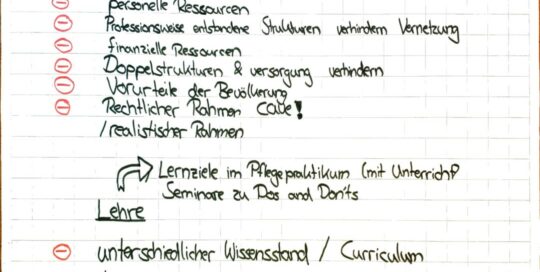 personelle Ressourcen
Professionsweise entstandene Strukturen verhindern Vernetzung
finanzielle Ressourcen
Doppelstrukturen & versorgung verhindern
Vorurteile der Bevölkerung
Rechtlicher Rahmen cave!
/realistischer Rahmen
Lernziele im Pflegepraktikum (mit Unterricht?
Seminare zu Dos and Don'ts
Lehre
unterschiedlicher Wissensstand / Curriculum